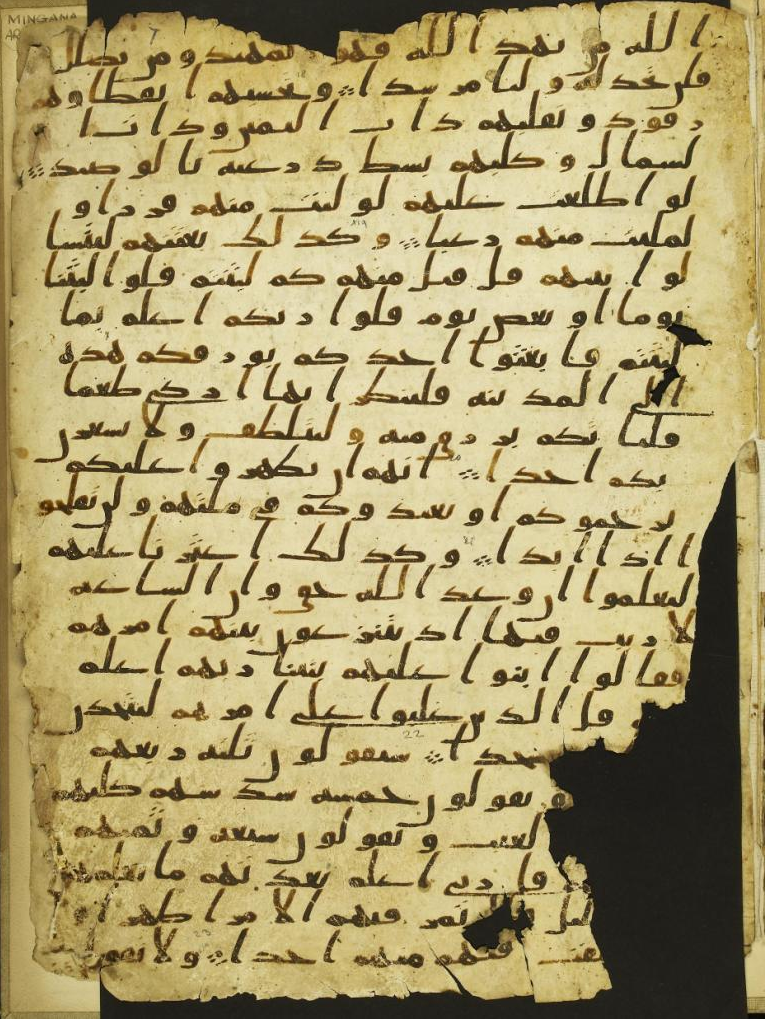 MINGANA
7
الله من يهد الله فهو المهتد ومن يضلل
فلن تجد له وليا مرشدا وتحسبهم ايقظا وهم
رقود ونقلبهم ذات اليمين وذات ا
لشمال وكلبهم بسط ذرعيه بالوصيد
لو اطلعت عليهم لوليت منهم فررا و
لملئت منهم رعبا وكذلك بعثنهم ليتسا
لوا بينهم قل قيل منهم كم لبثتم قلوا لبثنا
يوما او بعض يوم قلوا ربكم اعلم بما
لبثتم فابعثوا احدكم بورقكم هذه
الى المدينة فلينظر ايها ازكى طعما
فلياتكم برزق منه وليتلطف ولا يشعرن
بكم احدا انهم ان يظهروا عليكم
يرجموكم او يعيدوكم في ملتهم ولن تفلحو
ا اذا ابدا وكذلك اعثرنا عليهم
ليعلموا ان وعد الله حق وان الساعة
لا ريب فيها اذ يتنزعون بينهم امرهم
فقالوا ابنوا عليهم بنينا ربهم اعلم
قل الذين غلبوا على امرهم لنتخذن
سجدا سيقولون ثلثة ربعهم
22
و يقولون خمسة سدسهم كلبهم
لغيب و يقولون سبعة وثمنهم
قل ربي اعلم بعدتهم ما يعلمهم
تمر فيهم الا مرا ظهرا
فيهم منهم احدا ولا تقولن